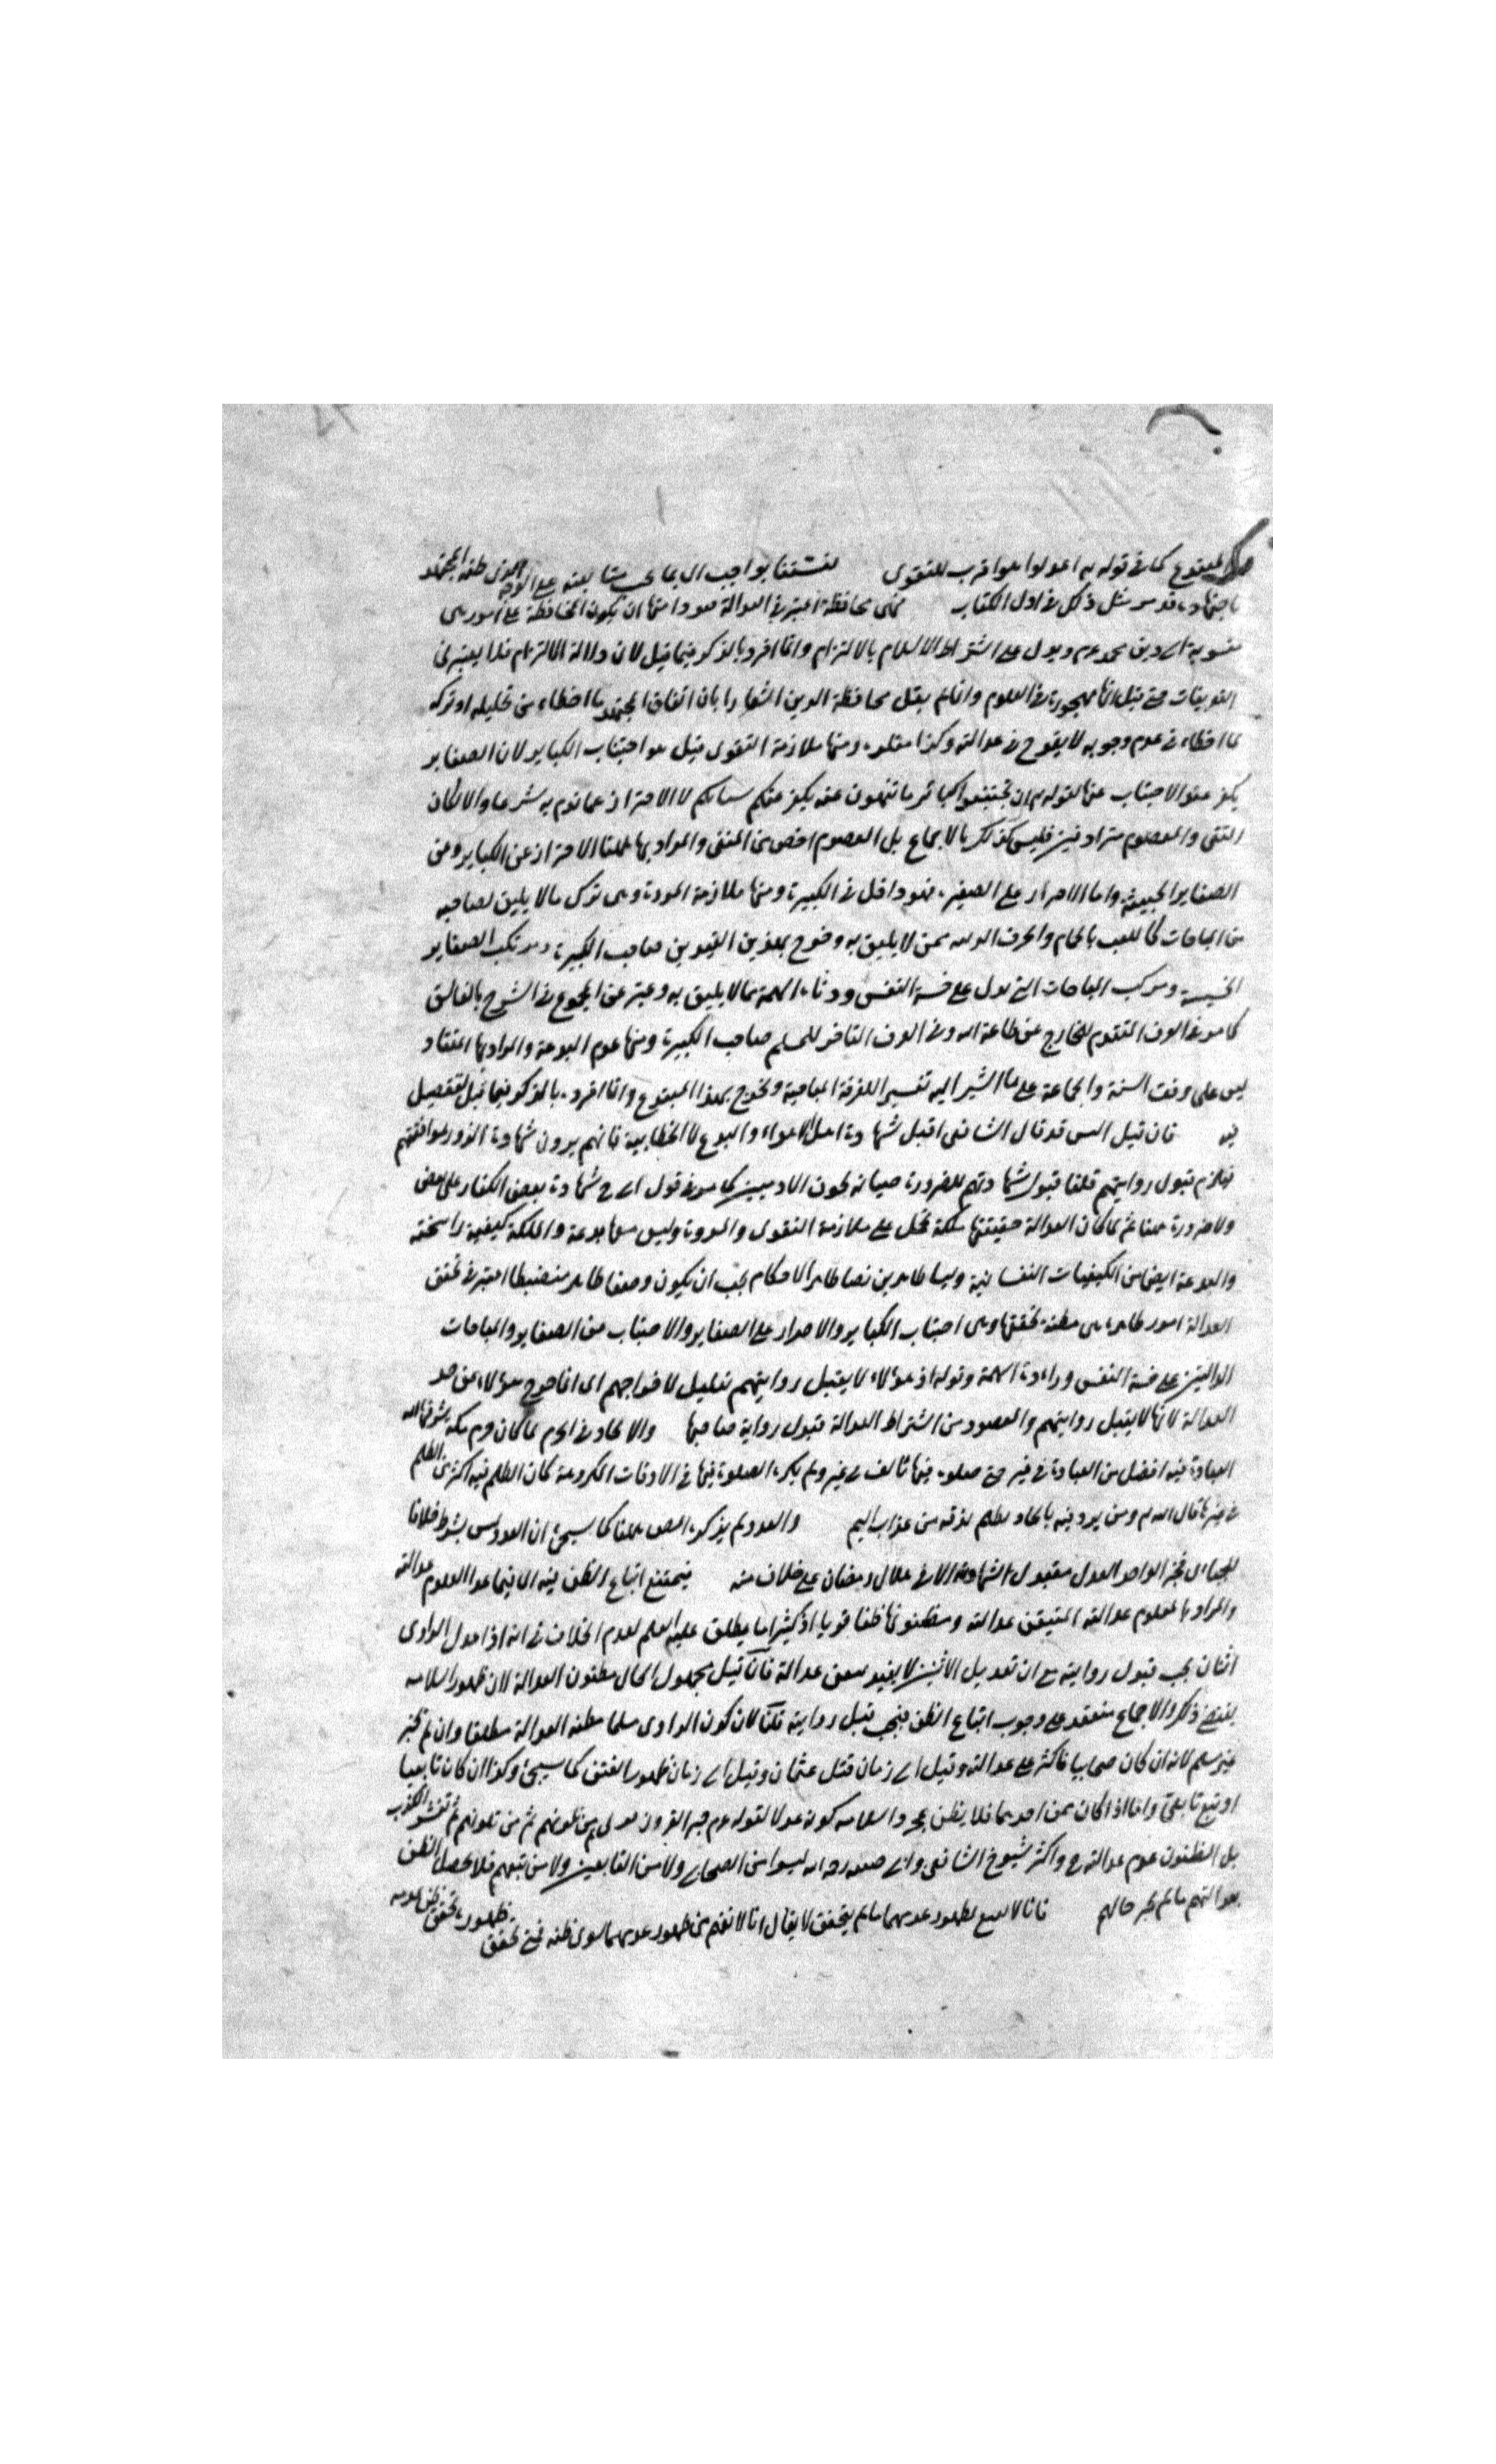 المبتدع كما في قوله تع اعدلوا هو اقرب للتقوى فتشبثنا بواجب اي بما يجب متابعته على الوجه الذي ظنه المجتهد
باجتهاده قد مر مثل ذلك في اول الكتاب فهي محافظة اعتبر في العدالة قيود منها ان يكون المحافظة على امور هي
منسوبة الى دين محمد عم ويدل على اشتراط الاسلام بالالتزام وانما افرد بالذكر فيما قبل لان دلالة الالتزام فلا يعتبر في
التعريفات حتى قيل انها مهجورة في العلوم وانما لم يقل محافظة الدين اشعارا بان اتفاق المجتهد ما اخطاء في تحليله او تركه
ما اخطاء في عدم وجوبه لا يقدح في عدالته وكذا مقلده ومنها ملازمة التقوى قيل هو اجتناب الكباير لان الصغاير
يكفر عند الاجتناب عنها لقوله تع ان تجتنبوا كبائر ما تنهون عنه يكفر عنكم سيئاتكم لا الاحتراز عما نوم به شرعا والا لكان
التقى والمعصوم مترادفين فليس كذلك بالاجماع بل المعصوم اخص من المتقى والمراد بها ههنا الاحتراز عن الكباير وعن
الصغاير الخبيثة واما الاصرار على الصغيرة فهو داخل في الكبيرة ومنها ملازمة المروة وهي ترك ما لا يليق لصاحبه
من المباحات كاللعب بالحمام والحرف الدنيه ممن لا يليق به وخرج بهذين القيدين صاحب الكبيرة ومرتكب الصغاير
الخسيسة ومرتكب المباحات التي تدل على خسة النفس ودناءة الهمة مما لا يليق به وعبر عن المجموع في الشرح بالفاسق
كما هو في العرف المتقدم للخارج عن طاعة الله وفي العرف المتاخر للمسلم صاحب الكبيرة ومنها عدم البدعة والمراد بها اعتقاد
ليس على وفق السنة والجماعة على ما اشير اليه تفسير الفرقة الناجية ويخرج بهذا المبتدع وانما افرده بالذكر فيما قبل لتفصيل
فيه فان قيل اليس قد قال الشافعي اقبل شهادة اهل الاهواء والبدع الا الخطابية فانهم يرون شهادة الزور لموافقتهم
فيلزم قبول روايتهم قلنا قبول شهادتهم للضرورة صيانة لحقوق الادميين كما هو في قول ابي ح شهادة بعض الكفار على بعض
ولا ضرورة ههنا ثم لما كان العدالة حقيقتها ملكة تحمل على ملازمة التقوى والمروة وليس معها بدعة والملكة كيفية راسخة
والبدعة ايضا من الكيفيات النفسانية وليسا ظاهرين نصا ظاهر الاحكام يجب ان يكون وصفا ظاهرا منضبطا اعتبر في تحقق
العدالة امور ظاهرة هي مظنة تحققها وهي اجتناب الكباير والاصرار على الصغاير والاجتناب من الصغاير والمباحات
الدالتين على خسة النفس ورداءة الهمة وقوله اذ هؤلاء لا يقبل روايتهم تعليل لاخراجهم اي انما اخرج هؤلاء عن حد
العدالة لانها لا يقبل روايتهم والمقصود من اشتراط العدالة قبول رواية صاحبها والالحاد في الحرم لما كان حرم مكة شرفها الله
العبادة فيه افضل من العبادة في غيره حتى صلوة فيها كالف في غيره ولم يكره الصلوة فيها في الاوقات المكروهة كان الظلم فيه اكثر من الظلم
في غيرها قال الله تع ومن يرد فيه بالحاد بظلم نذقه من عذاب اليم والعدد لم يذكره المص ههنا كما سيجئ ان العدد ليس بشرط خلافا
للجبائي فخبر الواحد العدل مقبول الشهادة الا في هلال رمضان على خلاف منه فيمتنع اتباع الظن فيه الا فيما عدا المعلوم عدالته
والمراد بالمعلوم عدالته المتيقن عدالته ومظنونها ظنا قويا اذ كثيرا ما يطلق عليه العلم لعدم الخلاف في انه اذا عدل الراوى
اثنان يجب قبول روايته مع ان تعديل الاثنين لا يفيد سوى عدالة فان قيل مجهول الحال مظنون العدالة لان ظهور اسلامه
يقتضي ذلك والاجماع منعقد على وجوب اتباع الظن فيجب قبل روايته قلنا لان كون الراوى مسلما مظنة العدالة مطلقا وان لم تخبر
غير مسلم لانه ان كان صحابيا فاكثر على عدالته وقيل الى زمان قتل عثمان وقيل الى زمان ظهور الفتن كما سيجئ وكذا ان كان تابعيا
او تبع تابعي واما اذا كان ممن احد بهما فلا يظن بمجرد اسلامه كونه عدلا لقوله عم خير القرون قرني ثم من يلونهم ثم من يلونهم ثم تفشو الكذب
بل المظنون عدم عدالته ح واكثر شيوخ الشافعي وابي حنيفة رحه الله ليسوا من الصحابي ولا من التابعين ولا من تبعهم فلا يحصل الظن
بعدالتهم ما لم يخبر حالهم فانا لا نسمع لظهور عدمهما ما لم يتحقق لا يقال انا لا نفهم من ظهور عدمهما سوى ظنه فمتى تحقق ظهوره تحقق ظن عدمه